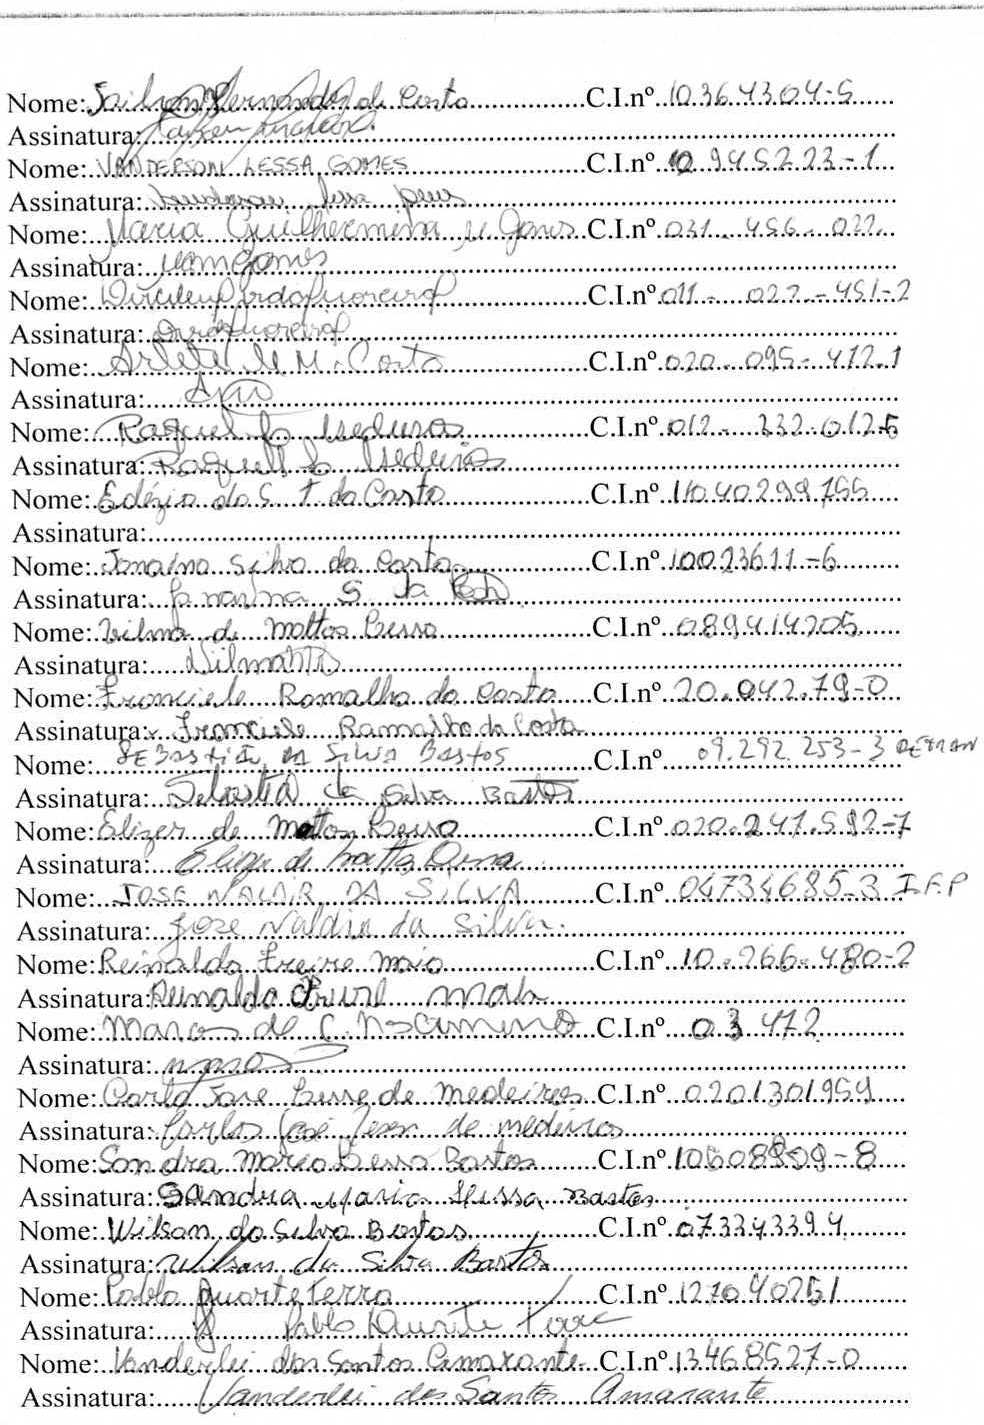 Nome: Jailson Fernandes da Costa C.I.nº 10364304-5
Assinatura:
Nome: VANDERSON LESSA GOMES C.I.nº 10.945223-1
Assinatura: Vanderson Lessa Gomes
Nome: Maria Guilhermina M Gomes C.I.nº 031.456.022
Assinatura: Gomes
Nome: C.I.nº 011-022-451-2
Assinatura:
Nome: Arlete de M. Costa C.I.nº 020.095-412-1
Assinatura:
Nome: Raquel L Medeiros C.I.nº 012-232-012-5
Assinatura: Raquel L Medeiros
Nome: Edézio da S. T. da Costa C.I.nº 11040299755
Assinatura:
Nome: Janaina Silva da Costa C.I.nº 10023611-6
Assinatura: Janaina S. da
Nome: Vilma de Mattos Bessa C.I.nº 089414205
Assinatura: Vilma
Nome: Franciele Ramalho da Costa C.I.nº 20.042.79-0
Assinatura: Franciele Ramalho da Costa
Nome: SEBASTIÃO DA SILVA BASTOS C.I.nº 09.292.253-3 DETRAN
Assinatura: da Silva Bastos
Nome: Elizer de Mattos Bessa C.I.nº 020.247.592-7
Assinatura: de Mattos
Nome: JOSE VALDIR DA SILVA C.I.nº 04734685-3 I.F.P
Assinatura: Jose Valdir da Silva.
Nome: Reinaldo Freire Maia C.I.nº 10.266.480-2
Assinatura: Reinaldo Freire Maia
Nome: Marcos de C. Nascimento C.I.nº 03472
Assinatura:
Nome: Carlos Jose Bessa de Medeiros C.I.nº 0201301959
Assinatura: Carlos José de Medeiros
Nome: Sandra Maria Bessa Bastos C.I.nº 10608899-8
Assinatura: Sandra Maria Bessa Bastos
Nome: Wilson da Silva Bastos C.I.nº 073343394
Assinatura: Wilson da Silva Bastos
Nome: Pablo Duarte Terra C.I.nº 127040251
Assinatura: Pablo Duarte Terra
Nome: Vanderlei dos Santos Amarante C.I.nº 13468527-0
Assinatura: Vanderlei dos Santos Amarante